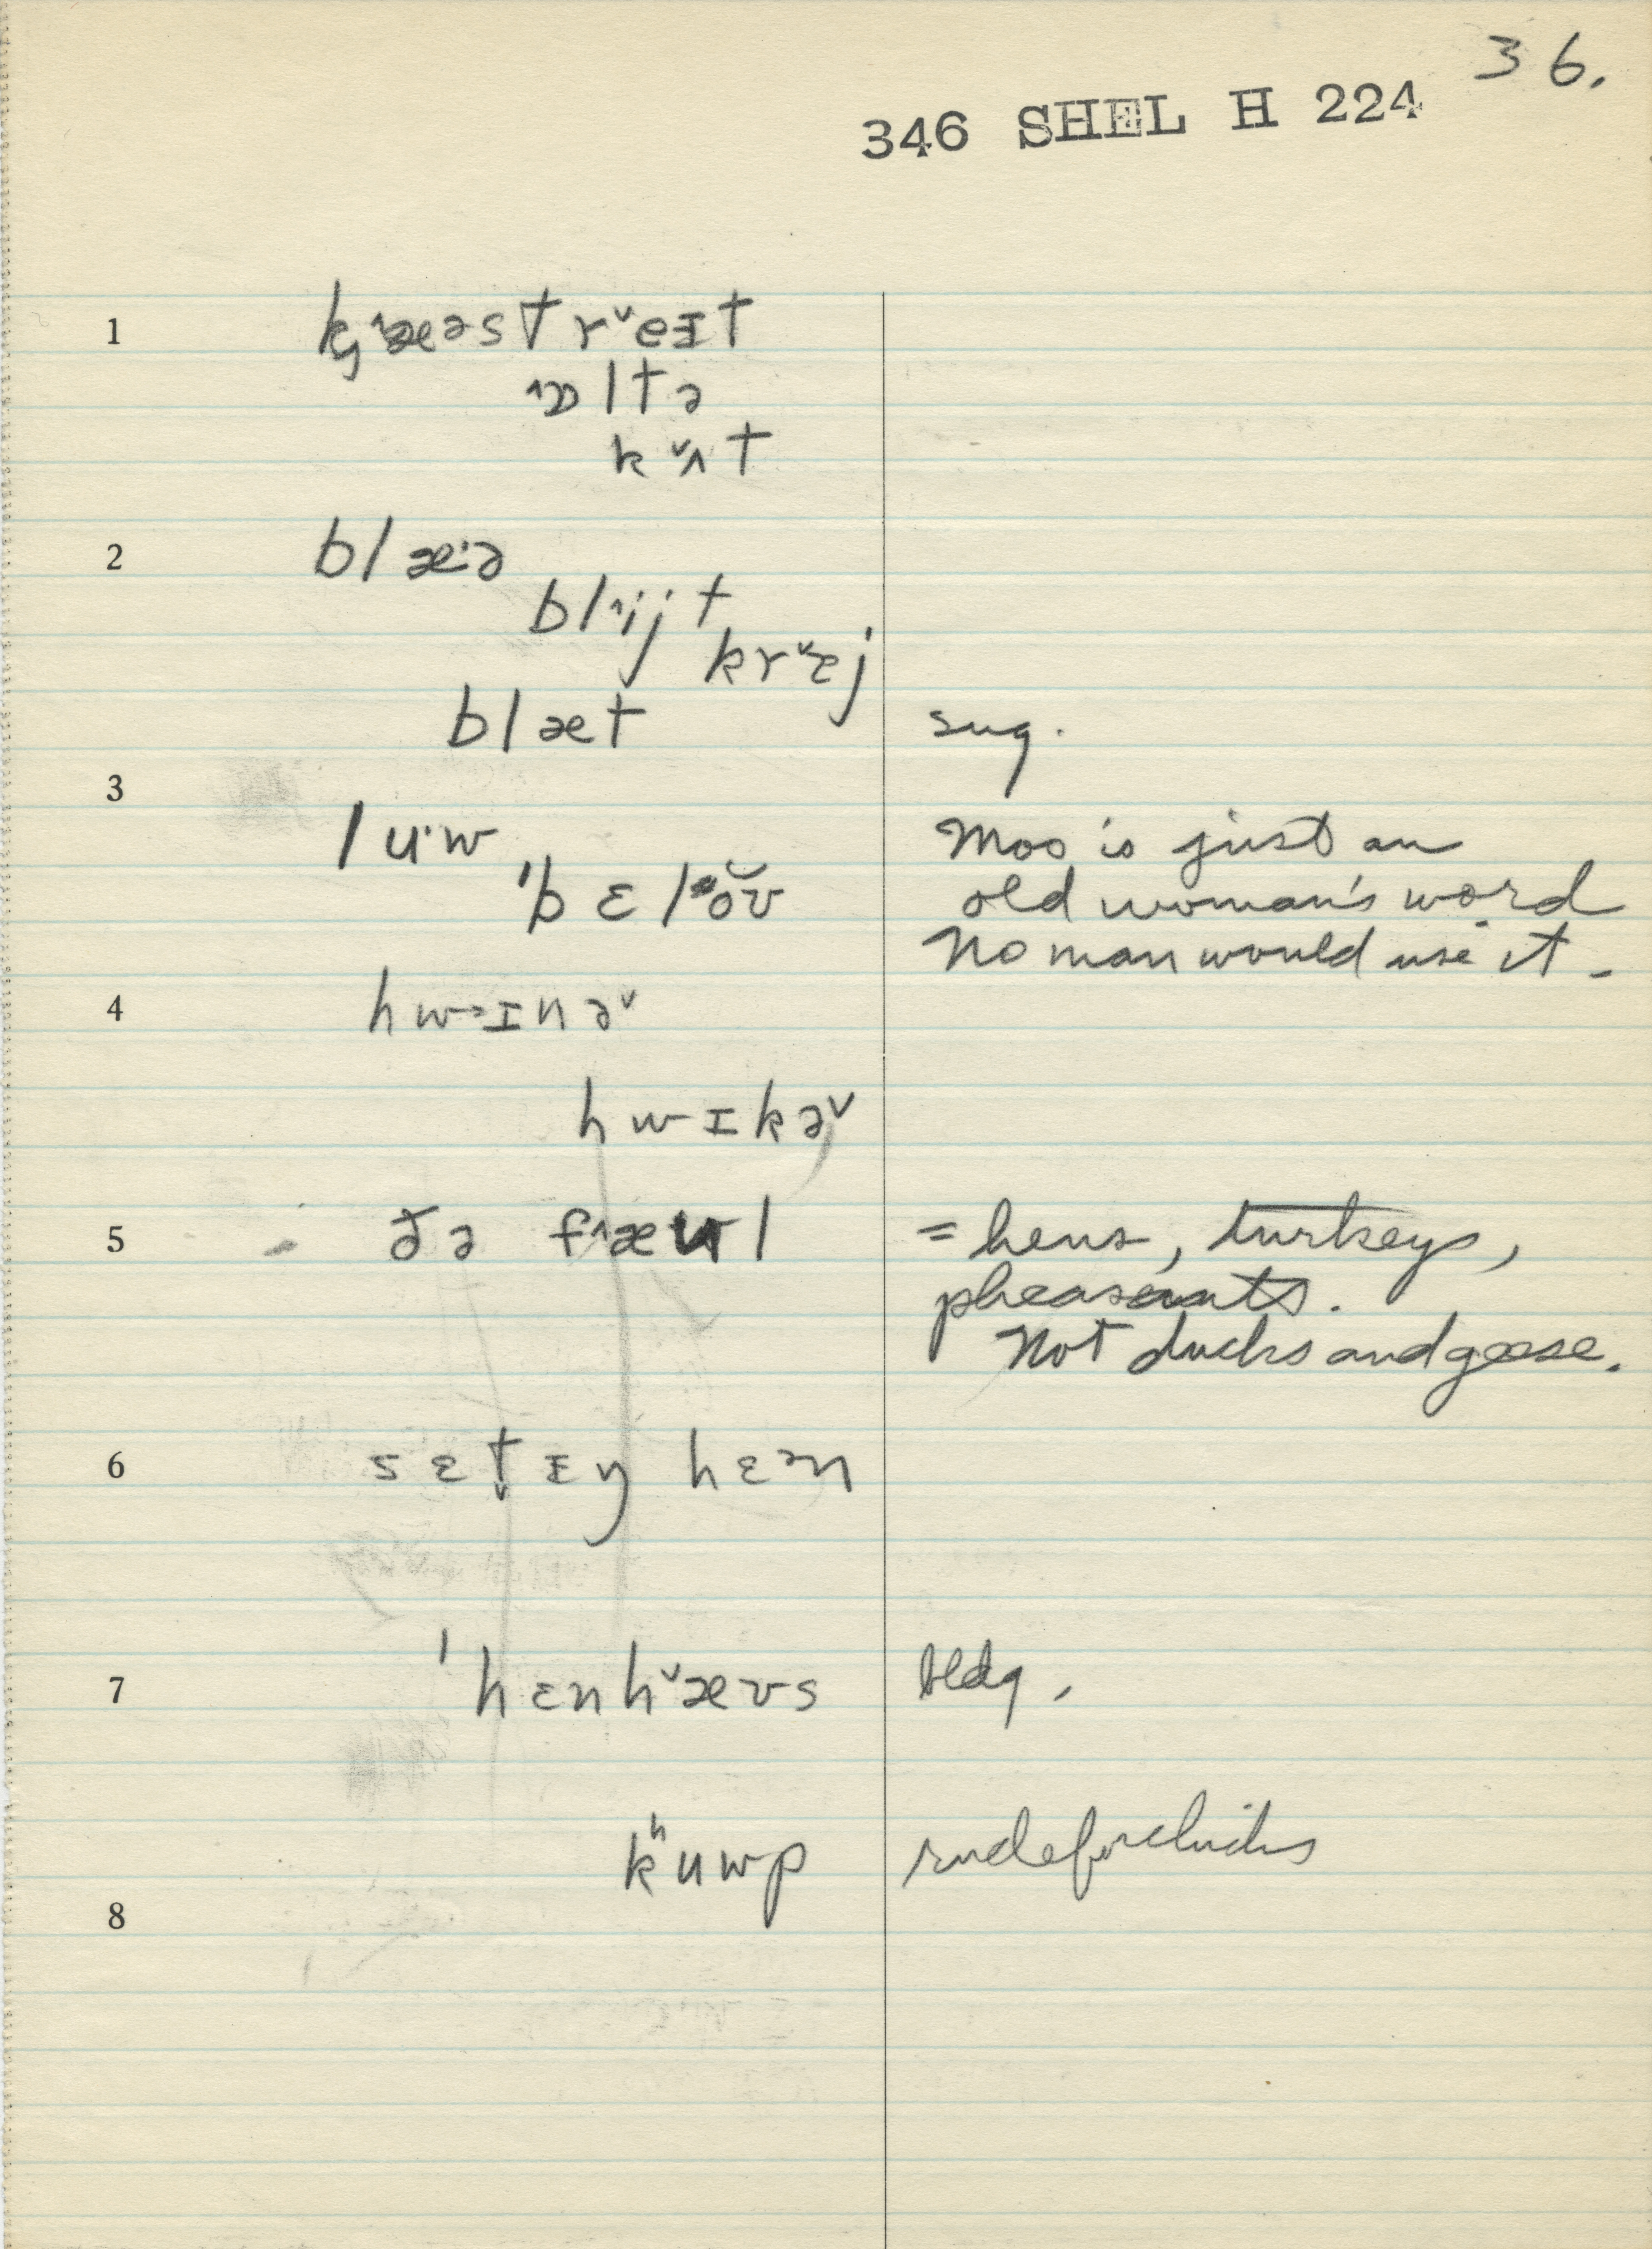 36.
346 SHEL H 224
1 k̡˄æəstr˅eɪt
˄ɒltə
k˅ʌt
2 blæ·ə
bl˄ijt
kr˅ɛj
blæt sug.
3
lu·w Moo is just an
'bɛl ŏʊ old woman's word
No man would use it.
4 hw˃ɪnə˅
hwɪkə˅
5 ðə f˄æul = hens, turkeys,
pheasants.
Not ducks and geese.
6 sɛt̬ɪŋ hɛən
7 'hɛnh˅æʊs bldg.
kʰuwp rude for chicks
8